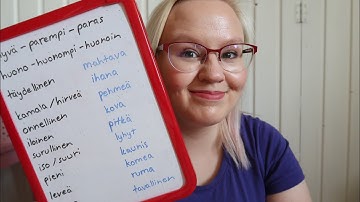 hyvä - parempi - paras
huono - huonompi - huonoin
täydellinen
kamala / hirveä
onnellinen
iloinen
surullinen
iso / suuri
pieni
leveä
mahtava
ihana
pehmeä
kova
pitkä
lyhyt
kaunis
komea
ruma
tavallinen